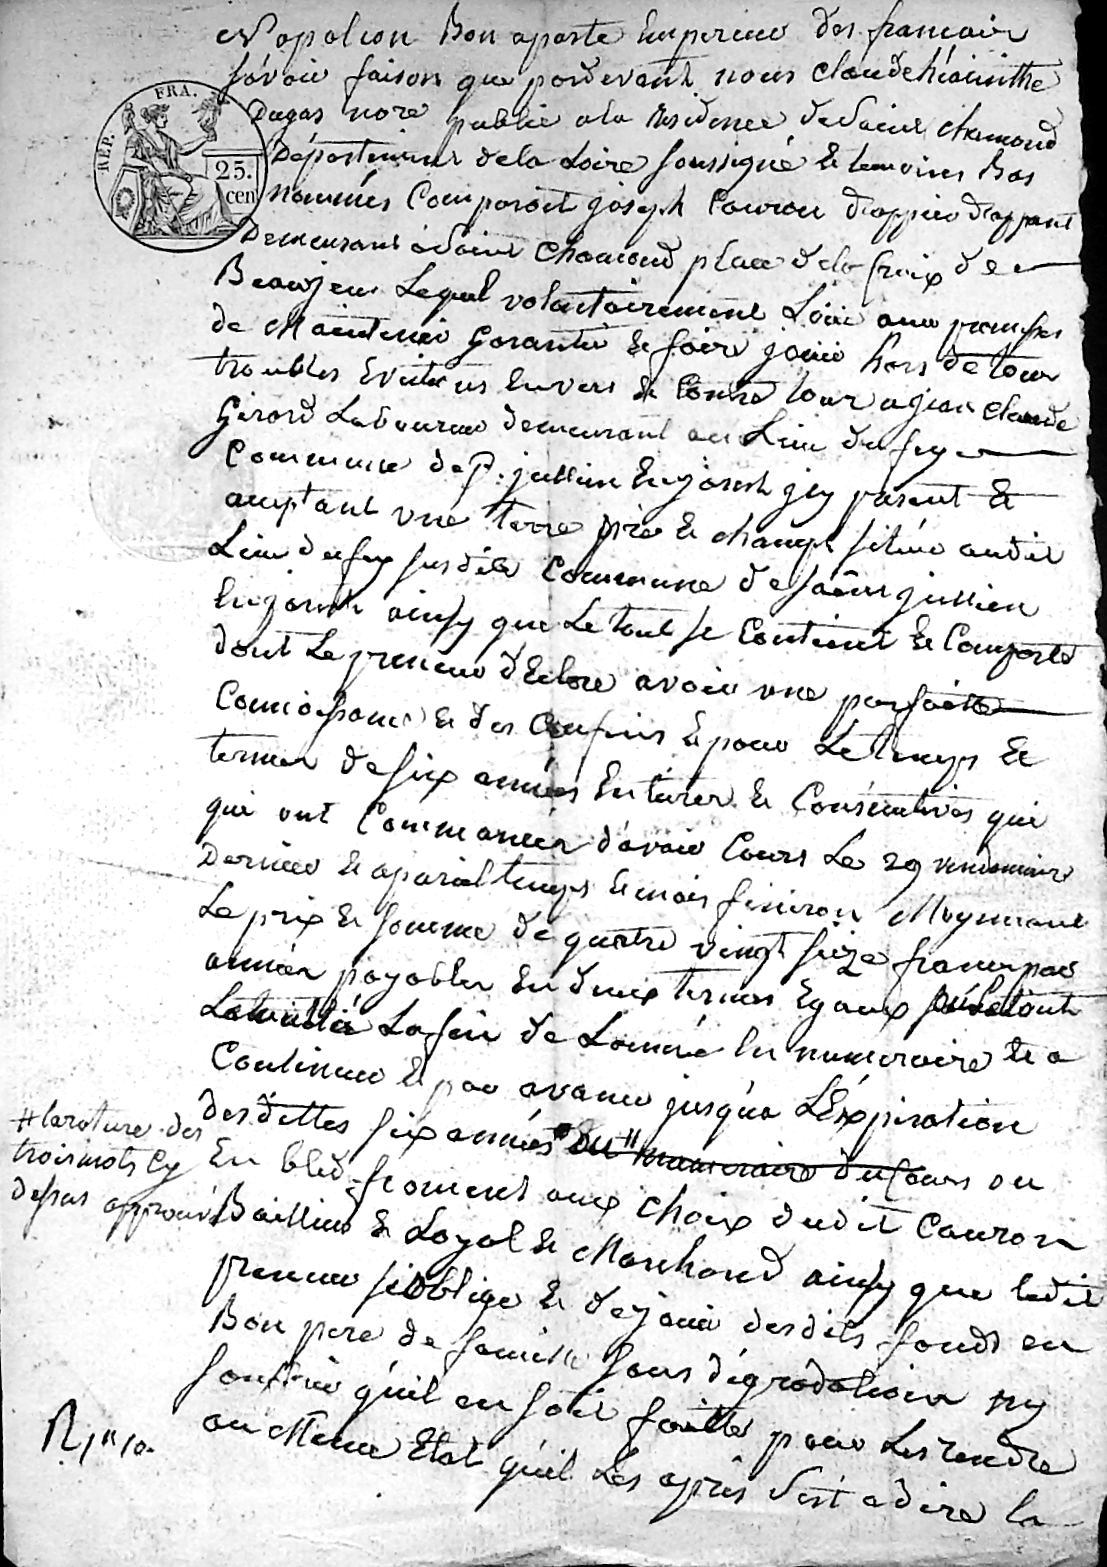 Napoleon Bonaparte Empereur des francair
savoir faison que pardevant nous claude hiacinthe
REP. FRA.
25.
cen
Dugas nore public a la residence de Saint chamond
Departement de la Loire soussigné et temoins Bas
nommés Comparoit joseph Couron drappier drappant
Demeurant a Saint chamond place de la Croix de
Beaujeu Lequel volontairement Loue aux promesses
de Maintenir Garantir et faire jouir hors de tous
troubles Evictions Envers et Contre tous a jean claude
Girard Laboureur demeurant au Lieu du fey
Commune de St. jullien En jarest jcy present et
aceptant une terre pré et champt situés audit
Lieu du fey susdite Commune de saint jullien
En jarest ainsy que Le tout se Contient et Comporte
dont Le preneur déclare avoir une parfaitte
Connoissance et des Confins et pour Le temps et
termes de six années Entieres et Consecutives qui
qui ont Commancées d'avoir Cours Le 29 vendemiaire
Dernier et a pareil temps et mois finiron Moyennant
Le prix et somme de quatre vingt seize francs par
années payables En deux termes Egaux
La fin de Lannée En numeraire et a
Continuer et par avance jusqua LExpiration
des dittes six années En numeraire du Cours ou
# la rature des
trois mots Cy
dessus approuvé
En bled froment aux choix dudit Couron
Bailleur et Loyal et Marchand ainsy que ledit
preneur s'oblige et de jouir desdits fonds en
Bon pere de famille sans dégradation ny
souffrir qu'il en soit faitte pour Les rendre
au Meme Etat qu'il Les apris C'est a dire la